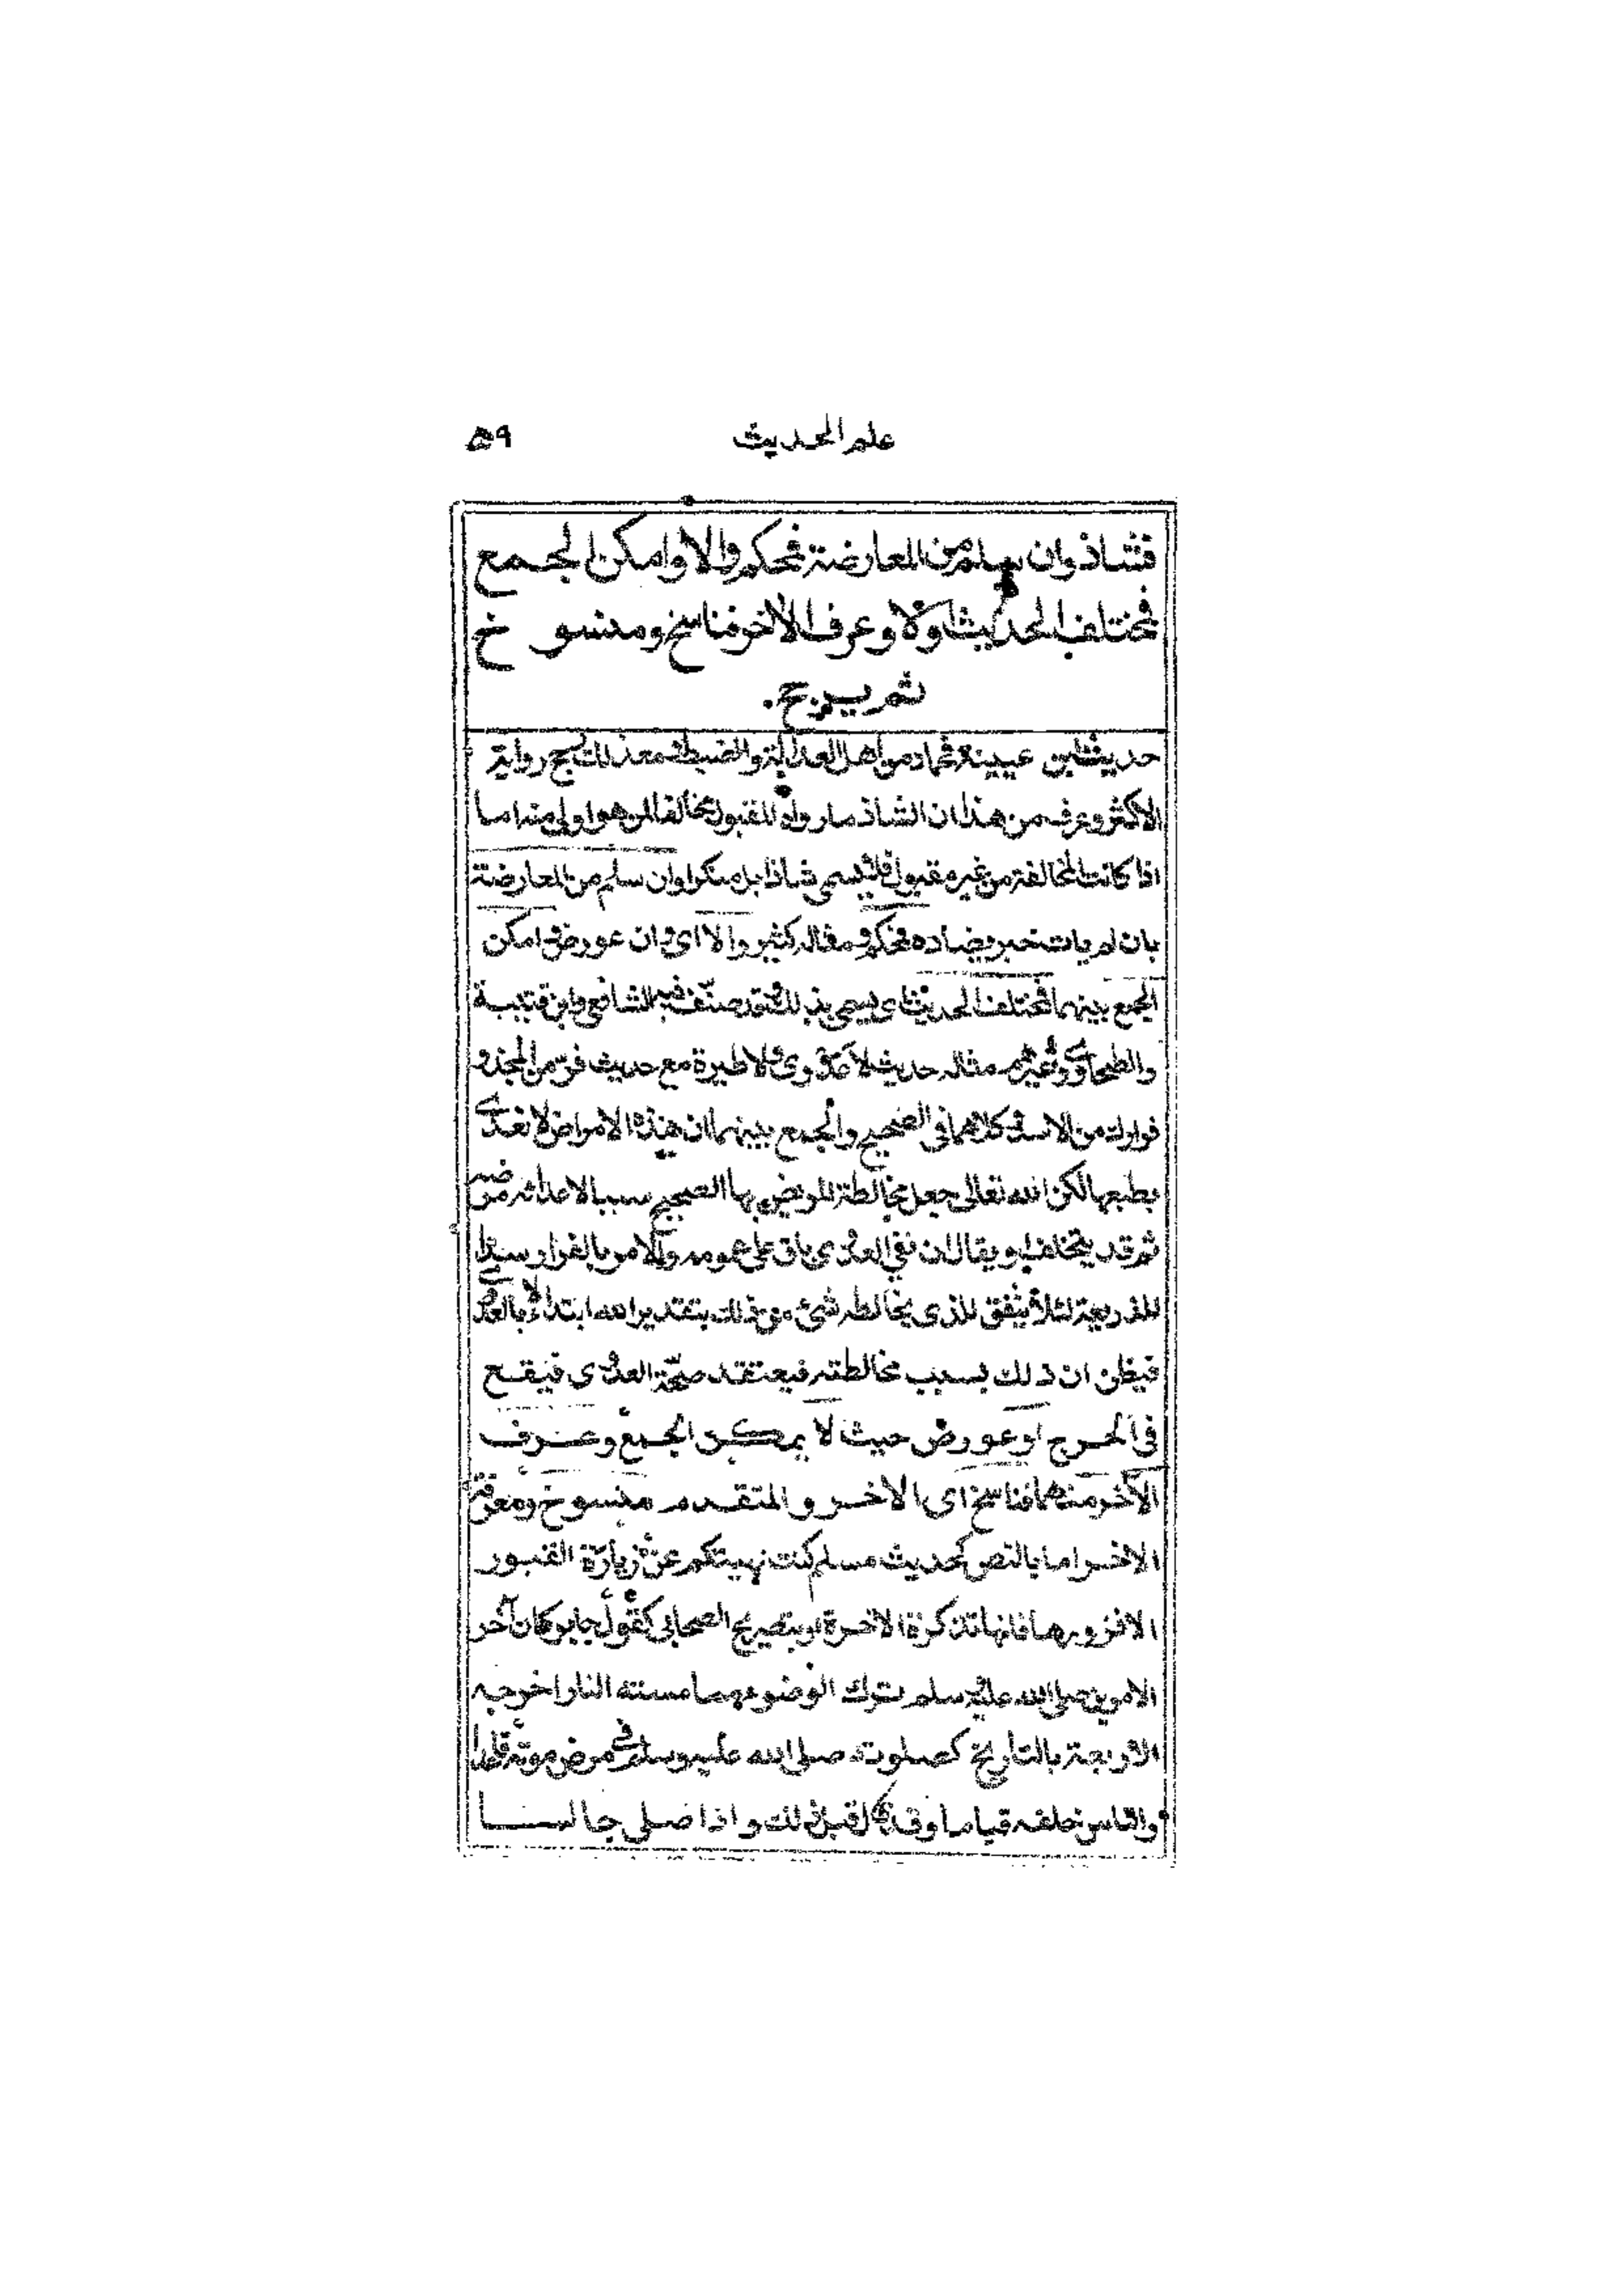 علم الحديث ٥٩
فشاذ وان سلم من المعارضة فمحكم والا وامكن الجمع
فمختلف الحديث اولا وعرف الآخر فناسخ ومنسوخ
ثم يرجح.
حديث ابن عيينة فحماد من اهل العدالة والضبط ومع ذلك رجح رواية
الاكثر وعرف من هذا ان الشاذ ما رواه المقبول مخالفا لمن هو اولى منه اما
اذا كانت المخالفة من غير مقبول فلا يسمى شاذا بل منكرا وان سلم من المعارضة
بان لم يات خبر يضاده فمحكم ومثاله كثير والا اى وان عورض وامكن
الجمع بينهما فمختلف الحديث اى يسمى بذلك وقد صنّف فيه الشافعي وابن قتيبة
والطحاوى وغيرهم مثاله حديث لا عدوى ولا طيرة مع حديث فر من المجذوم
فرارك من الاسد وكلاهما فى الصحيح والجمع بينهما ان هذه الامراض لا تعدى
بطبعها لكن الله تعالى جعل مخالطة المريض بها الصحيح سببا لاعدائه مرضه
ثم قد يتخلف او يقال ان نفي العدوى باق على عمومه والامر بالفرار سدا
للذريعة لئلا يتفق للذى يخالطه شئ من ذلك بتقدير الله ابتداء لا بالعدوى
فيظن ان ذلك بسبب مخالطته فيعتقد صحّة العدوى فيقع
فى الحرج او عورض حيث لا يمكن الجمع وعرف
الآخر منهما فناسخ اى الاخر والمتقدم منسوخ ومعرفة
الاخر اما بالنص كحديث مسلم كنت نهيتكم عن زيارة القبور
الا فزوروها فانها تذكرة الاخرة او بتصريح الصحابي كقول جابر كان آخر
الامرين صلى الله عليه وسلم ترك الوضوء مما مسته النار اخرجه
الاربعة بالتاريخ كصلوته صلى الله عليه وسلم فى مرض موته قاعدا
والناس خلفه قياما وقد قال قبل ذلك واذا صلى جالسا